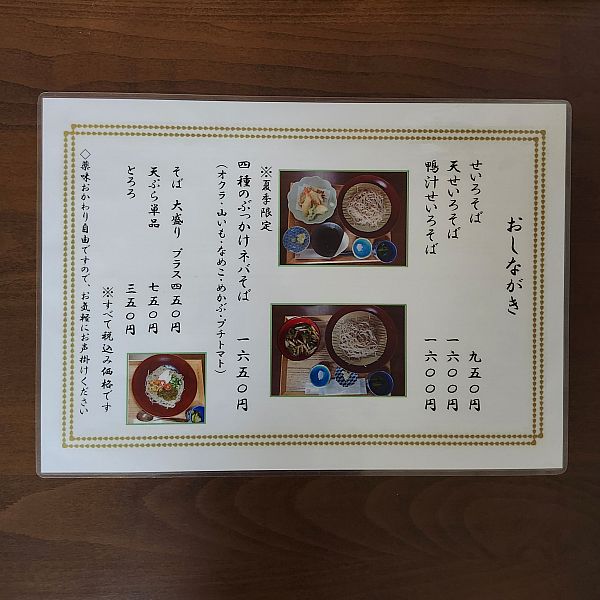 おしながき
せいろそば 九五〇円
天せいろそば 一六〇〇円
鴨汁せいろそば 一六〇〇円
※夏季限定
四種のぶっかけネバそば 一六五〇円
(オクラ・山いも・なめこ・めかぶ・プチトマト)
そば 大盛り プラス四五〇円
天ぷら単品 七五〇円
とろろ 三五〇円
※すべて税込み価格です
◇薬味おかわり自由ですので、お気軽にお声掛けください